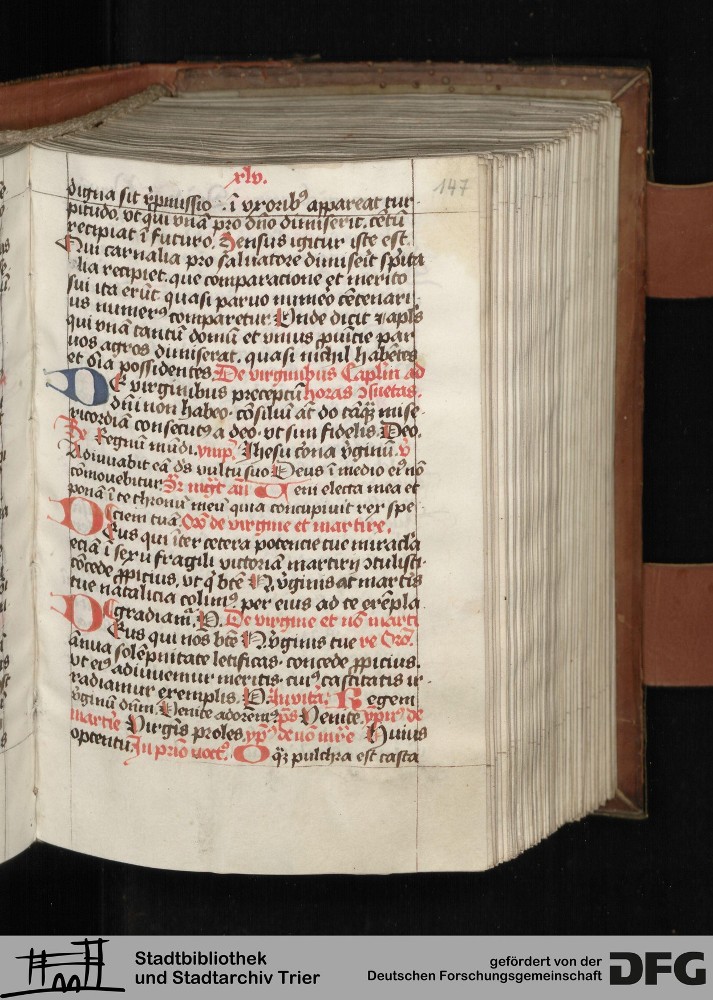 xlv.
147
digna sit repmissio · ī vxoribꝰ appareat tur
pitudo, vt qui vnā pro dño dimiserit, cētū
recipiat ī futuro. Sensus igitur iste est.
Qui carnalia pro saluatore dimiserit spūa
lia recipiet. que comparacione et merito
sui ita erūt quasi paruo numero cētenari
us numerꝰ comparetur. Vnde dicit apl̄s
qui vnā tantū domū et vnius puincie par
uos agros dimiserat, quasi nichil habētes
et oīa possidentes. De virginibus Caplm̄ ad
DE virginibus preceptū horas ↄsuetas.
dñi non habeo. cōsiliū aūt do tāqꝫ mise
ricordiā consecutꝰ a deo. vt sim fidelis. Deo.
Re Regnū mūdi. ymp̄. Jhesu corōa v̓ginū. v̓
Adiuuabit eā ds̄ vultu suo Deus ī medio eiꝰ nō
cōmouebitur Sr̄ mgt̄ an̄ Veni electa mea et
ponā ī te thronū meū quia concupiuit rex spe
ciem tuā. Orō de virgine et martire.
Deus qui īter cetera potencie tue miracl̄a
eciā ī sexu fragili victoriā martirij ↄtulisti.
cōcede ꝓpicius, vt qͥ btē N. v̓ginis at martiris
tue natalicia colimꝰ. per eius ad te exēpla
gradiam̄. P. De virgine et nō marti
Deus qui nos btē N. v̓ginis tue re Orō.
ānua solēpnitate letificas. concede ꝓpicius.
vt eiꝰ adiuuemur meritis. cuiꝰ castitatis ir
radiamur exemplis. P. Juuitā. Regem
v̓ginū dn̄m. Venite adoremꝰ. ps̄ Venite. ypn̄ꝰ de
martire Virgīs proles. yp̄ꝰ de nō mr̄e Huius
optentu. Jn prīo noct̄. O qͣꝫ pulchra est casta
Stadtbibliothek
und Stadtarchiv Trier
gefördert von der
Deutschen Forschungsgemeinschaft
DFG